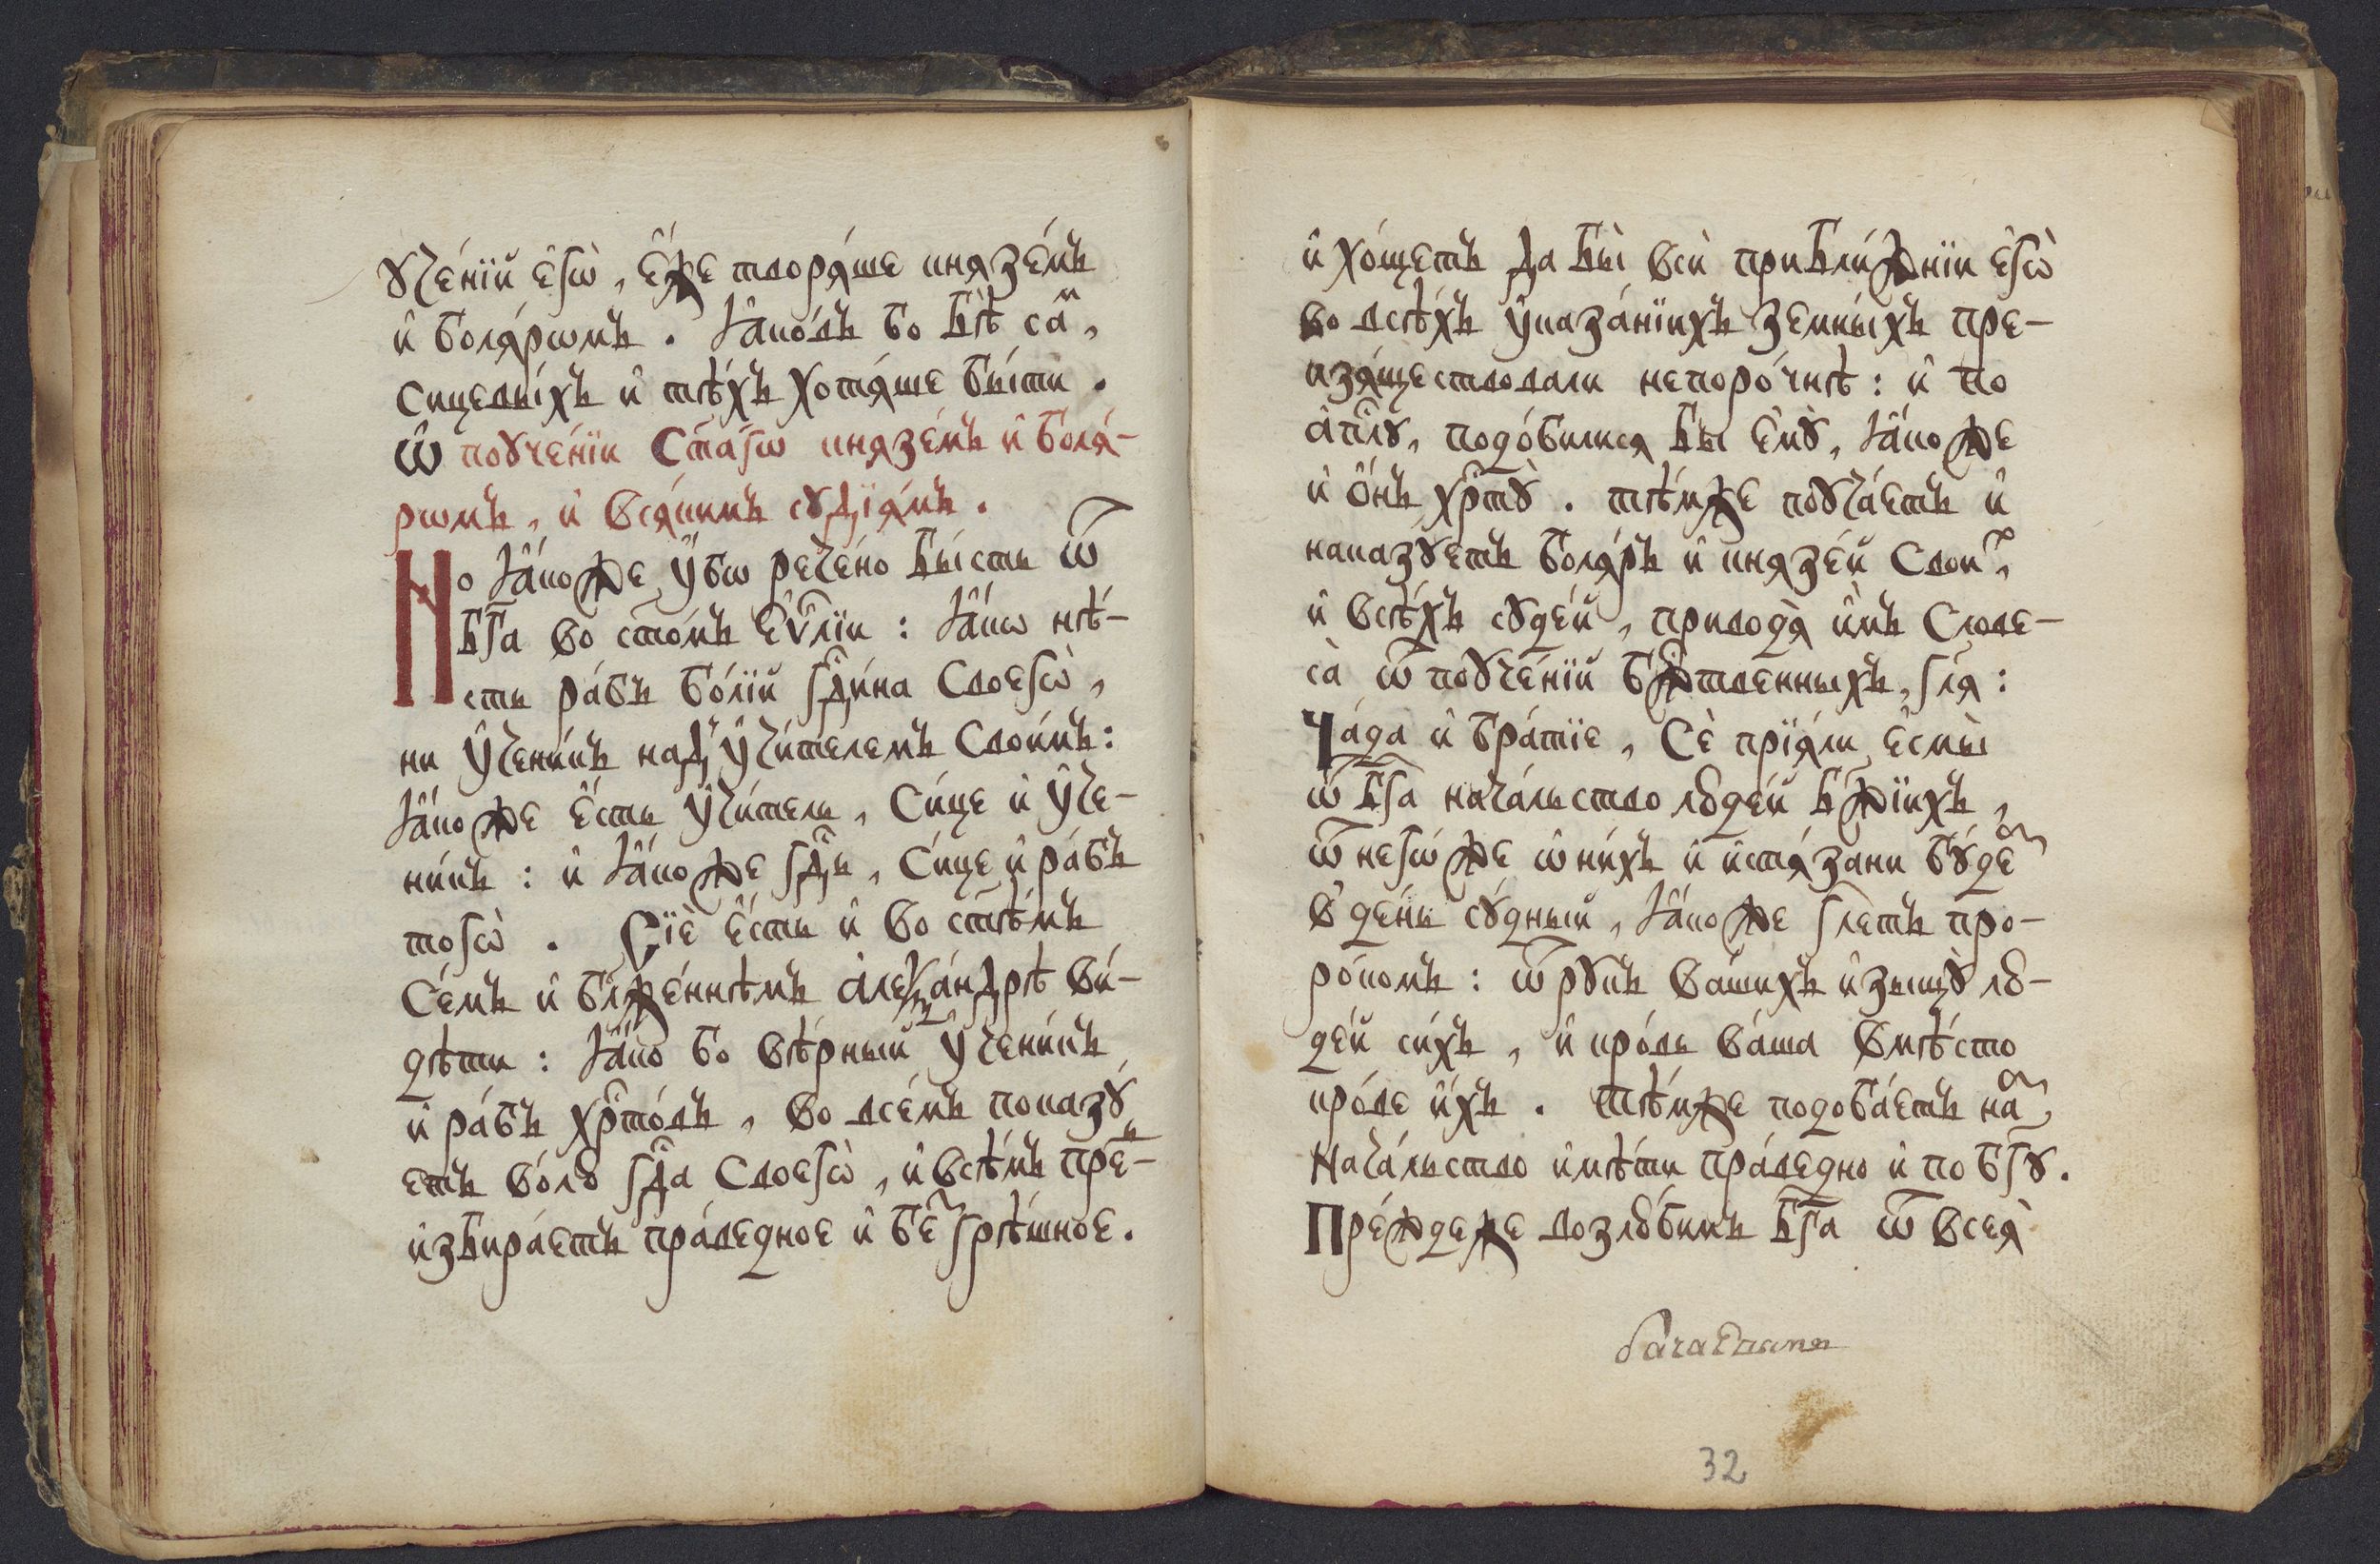 ꙋче́нїй є҆гѡ̀, є҆́же творѧ́ше кнѧзе́мъ
и҆ болѧ́рѡмъ. Ꙗ҆ко́въ бо бѣ̀ са́ᵐ,
сицевы́хъ и҆ тѣ́хъ хотѧ́ше бы́ти.
Ѡ҆ поꙋче́нїи ст҃а́гѡ кнѧзе́мъ и҆ болѧ́-
рѡмъ, и҆ всѧ́кимъ сꙋдїѧ́мъ.
Но ꙗ҆́коже ᲂу҆́бѡ рече́но бы́сть ѿ
бг҃а во ст҃о́мъ є҆ѵⷢ҇лїи: ꙗ҆́кѡ нѣ́-
сть ра́бъ бо́лїй гдⷭ҇и́на своегѡ̀,
ни ᲂу҆чени́къ над̾ ᲂу҆чи́телемъ свои́мъ:
ꙗ҆́коже є҆́сть ᲂу҆чи́тель, си́це и҆ ᲂу҆че-
ни́къ: и҆ ꙗ҆́коже гдⷭ҇ь, си́це и҆ ра́бъ
тогѡ̀. Сїѐ є҆́сть и҆ во ст҃ѣ́мъ
се́мъ и҆ бл҃же́ннѣмъ а҆леѯа́ндрѣ ви́-
дѣти: ꙗ҆́ко бо вѣ́рный ᲂу҆чени́къ
и҆ ра́бъ хрⷭ҇то́въ, во все́мъ показꙋ́-
етъ во́лю гдⷭ҇а своегѡ̀, и҆ всѣ́мъ пре-
и҆збира́етъ пра́ведное и҆ беᶻгрѣ́шное.
и҆ хо́щетъ да бы̀ всѝ прибли́жнїи є҆гѡ̀
во всѣ́хъ ᲂу҆каза́нїихъ земны́хъ пре-
изѧ́ществовали непоро́чнѣ: и҆ по
а҆пⷭ҇лꙋ, подо́билисѧ бы є҆мꙋ̀, ꙗ҆́коже
и҆ ѻ҆́нъ хрⷭ҇тꙋ̀. тѣ́мже поꙋча́етъ и҆
наказꙋ́етъ болѧ́ръ и҆ кнѧзе́й своиˣ,
и҆ всѣ́хъ сꙋде́й, приводѧ̀ и҆̀мъ слове-
са̀ ѿ поꙋче́нїй бж҃ⷭ҇твенныхъ, гл҃ѧ:
Ча́да и҆ бра́тїе, сѐ прїѧ́ли є҆смы̀
ѿ бг҃а нача́льство люде́й бж҃їихъ,
ѿ негѡ́же ѡ҆ ни́хъ и҆ и҆стѧ́зани бꙋ́деᵐ
в̾ де́нь сꙋ́дный, ꙗ҆́коже гл҃етъ про-
ро́комъ: ѿ рꙋ́къ ва́шихъ и҆зыщꙋ̀ лю-
де́й си́хъ, и҆ кро́вь ва́ша вмѣ́сто
кро́ве и҆́хъ. тѣ́мже подоба́етъ на́ᵐ
нача́льство и҆мѣ́ти пра́ведно и҆ по бг҃ꙋ.
Пре́ждеже возлю́бимъ бг҃а ѿ всеѧ̀
32